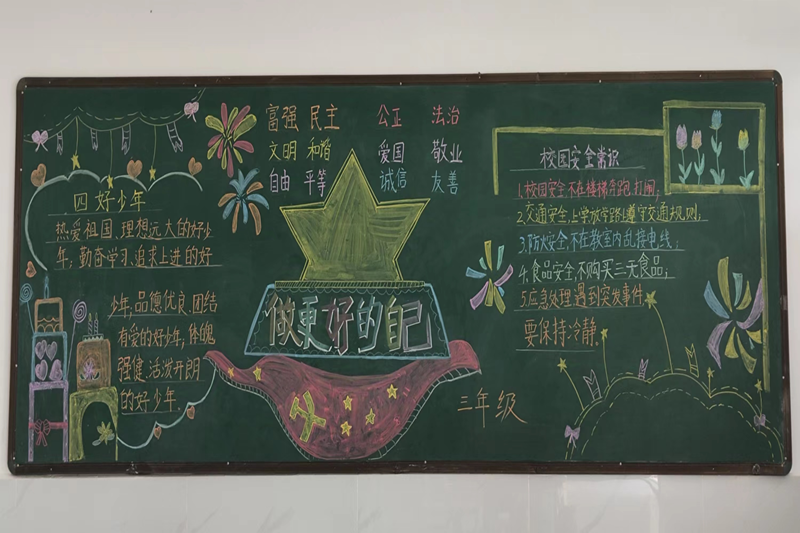 富强 民主 公正 法治
文明 和谐 爱国 敬业
自由 平等 诚信 友善
四好少年
热爱祖国,理想远大的好少
年;勤奋学习、追求上进的好
少年,品德优良、团结
有爱的好少年;体魄
强健、活泼开朗
的好少年.
做更好的自己
三年级
校园安全常识
1.校园安全:不在楼梯奔跑、打闹;
2.交通安全:上学放学路上遵守交通规则;
3.防火安全:不在教室内乱接电线;
4.食品安全:不购买三无食品;
5.应急处理:遇到突发事件
要保持冷静.